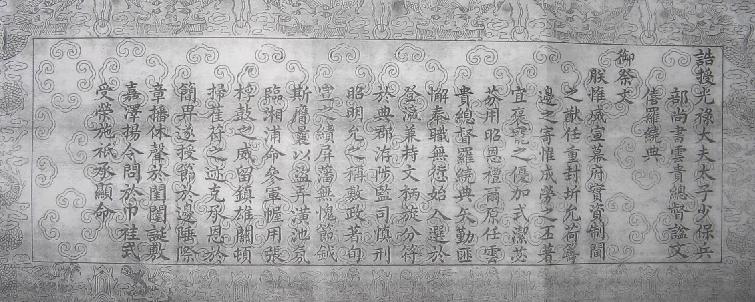 誥授光祿大夫太子少保兵
部尚書雲貴總督謚文
僖羅繞典
御祭文
朕惟威宣幕府實資制閫
之猷任重封圻允荷籌
邊之寄惟成勞之丕著
宜褒寵之優加式潔苾
芬用昭恩禮爾原任雲
貴總督羅繞典矢勤匪
懈奉職無愆始入選於
登瀛業持文柄旋分符
於典郡洊陟監司慎刑
昭明允之稱敷政著旬
宣之績屏藩無愧節鉞
斯膺曩以盜弄潢池氛
臨湘浦命參軍幄用張
桴鼓之威留鎮雄關頓
掃萑苻之迹克承恩於
簡畀遂授節於邊陲際
章播休聲於閨閫誕敷
嘉澤揚令問於巾式
受榮施祇承顯命